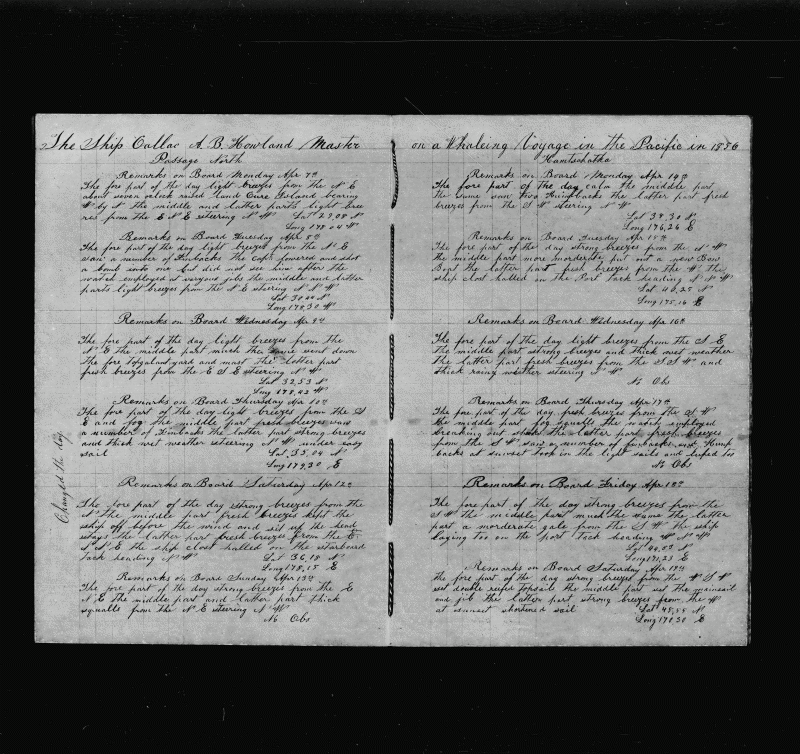 The Ship Callao A. B. Howland Master
Passage North
Remarks on Board Monday Apr 7th
The fore part of the day light breezes from the N E
about seven oclock raised land Cure Island bearing
W by N the middle and latter parts light bree
zes from the E N E steering N W Lat 29,08 N
Long 178 04 W
Remarks on Board Tuesday Apr 8th
The fore part of the day light breezes from the N E
saw a number of finbacks the capt lowered and shot
a bomb into one but did not see him after the
watch employed at varyous jobs the middle and latter
parts light breezes from the N E steering N N W
Lat 30 00 N
Long 178,30 W
Remarks on Board Wednesday Apr 9th
The fore part of the day light breezes from the
N E the middle part much the same went down
the fore topgalant yard and mast the latter part
fresh breezes from the E S E steering N W
Lat 32,53 N
Long 178,42 W
Remarks on Board Thursday Apr 10th
The fore part of the day light breezes from the S
E and fog the middle part fresh breezes saw
a number of Finbacks the latter part strong breezes
and thick wet weather steering N W under easy
sail Lat 35,04 N
Long 179,30 E
Changed the day
Remarks on Board Saturday Apr 12th
The fore part of the day strong breezes from the
S the middle part fresh breezes kept the
ship off before the wind and sit up the head
stays the latter part fresh breezes from the E
N E the ship clost halled on the starboard
tack heading N W Lat 36,18 N
Long 178,15 E
Remarks on Board Sunday Apr 13th
The fore part of the day strong breezes from the E
N E the middle part and latter part thick
squalls from the N E steering N W
No Obs
on a Whaleing Voyage in the Pacific in 1856
Kamtschatka
Remarks on Board Monday Apr 14th
The fore part of the day calm the middle part
the same saw two Humpbacks the latter part fresh
breezes from the S W steering N W
Lat 38,30 N
Long 176,26 E
Remarks on Board Tuesday Apr 15th
The fore part of the day strong breezes from the S W
the middle part more morderate put out a new Bow
Boat the latter part fresh breezes from the W the
ship clost halled on the Port Tack heading N N W
Lat 40,25 N
Long 175,16 E
Remarks on Board Wednesday Apr 16th
The fore part of the day light breezes from the S E
the middle part strong breezes and thick wet weather
the latter part fresh breezes from the S S W and
thick rainy weather steering N W
No Obs
Remarks on Board Thursday Apr 17th
The fore part of the day fresh breezes from the S W
the middle part fog squalls the watch employed
breaking out the latter part fresh breezes
from the S W saw a number of finbacks and Hump
backs at sunset took in the light sails and lufed too
No Obs
Remarks on Board Friday Apr 18th
The fore part of the day strong breezes from the
S W the middle part much the same the latter
part a morderate gale from the S W the ship
laying too on the port Tack heading W N W
Lat 44,03 N
Long 171,23 E
Remarks on Board Saturday Apr 19th
the fore part of the day strong breezes from the W S W
set double reefed topsails the middle part set the mainsail
and jib the latter part strong breezes from the W
at sunset shortened sail Lat 45,55 N
Long 170 30 E